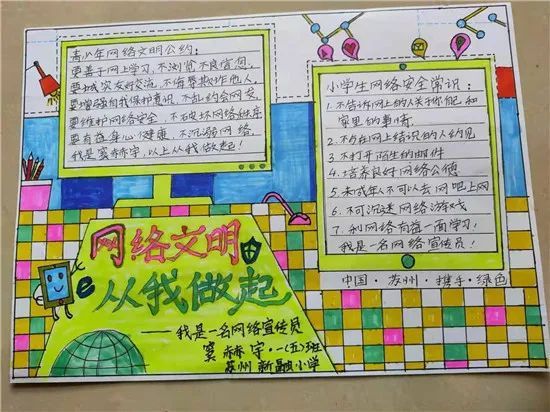 青少年网络文明公约：
要善于网上学习，不浏览不良信息，
要诚实友好交流，不侮辱欺诈他人，
要增强自我保护意识，不乱约会网友，
要维护网络安全，不破坏网络秩序，
要有益身心健康，不沉溺网络，
我是窦赫宇，以上从我做起！
小学生网络安全常识：
1.不告诉网上的人关于你自己和
家里的事情。
2.不与在网上结识的人约见
3.不打开陌生的邮件
4.培养良好网络公德
5.未成年人不可以去网吧上网
6.不可沉迷网络游戏
7.利网络有每一面学习！
我是一名网络宣传员！
中国·苏州·携手·绿色
网络文明
从我做起
——我是一名网络宣传员
窦赫宇·一(五)班
苏州新融小学